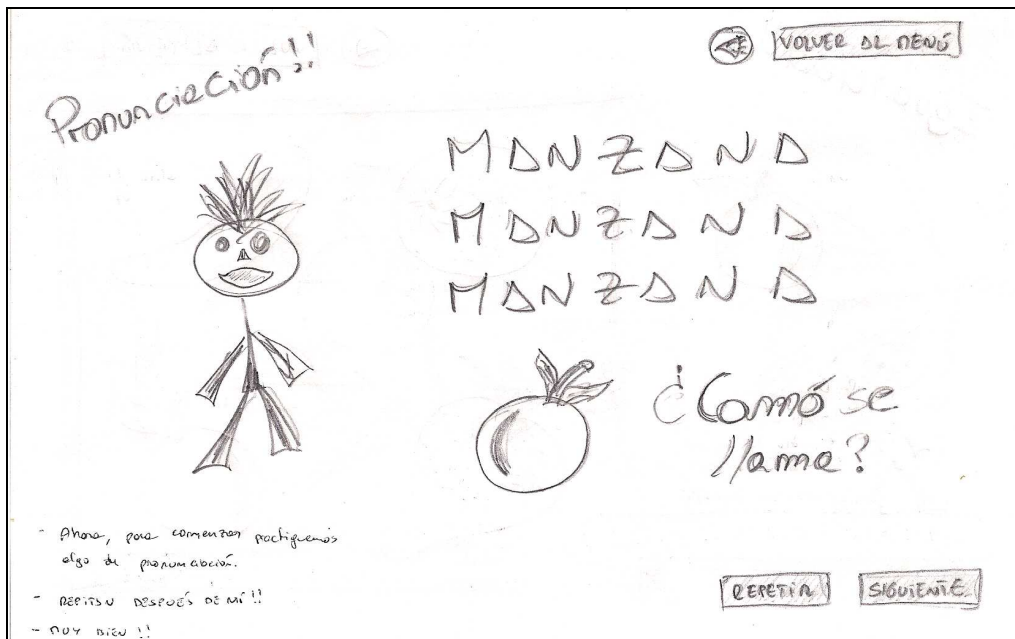 Pronunciación!!
VOLVER AL MENÚ
MANZANA
MANZANA
MANZANA
¿Comó se
llama?
- Ahora, para comenzar practiquemos
algo de pronunciación.
- REPITAN DESPUÉS DE MÍ!!
- MUY BIEN!!
REPETIR
SIGUIENTE